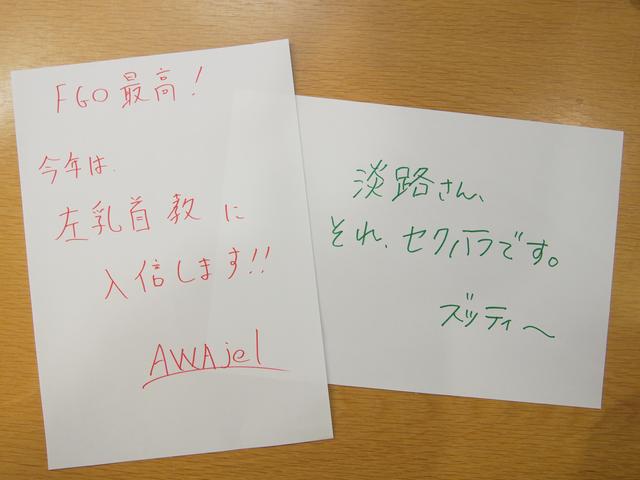 FGO最高!
今年は、
左乳首教に
入信します!!
AWAjel
淡路さん、
それ、セクハラです。
ズッティ〜